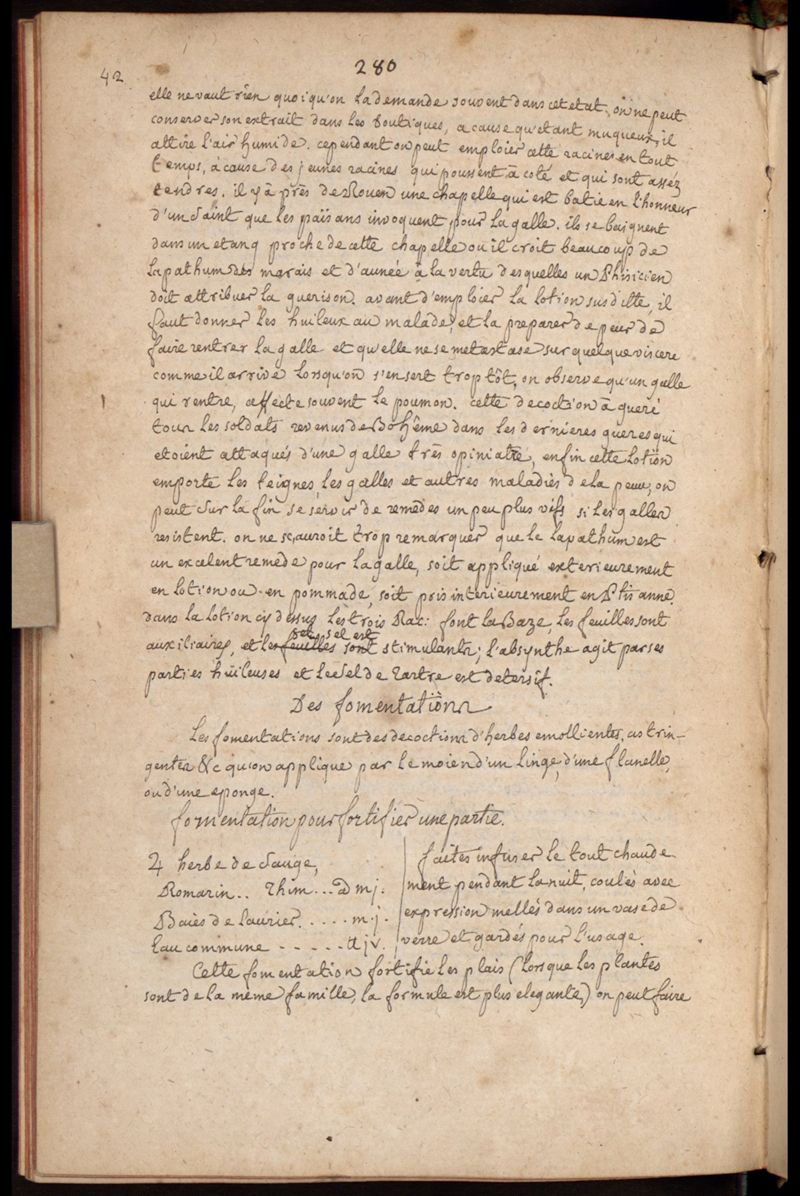 42
280
elle ne vaut rien quoiqu'on la demande souvent dans cet etat, on ne peut
conserver son extrait dans les boutiques, a cause qu'etant muqueux, il
attire l'air humide. cependant on peut emploier cette racine en tout
temps, à cause des jeunes racines qui poussent à coté et qui sont asséz
tendres. il y à près de Rouen une chapelle qui est batie en l'honneur
d'un Saint que les païsans invoquent pour la galle. ils se baignent
dans un etang proche de cette chapelle ou il croit beaucoup de
lapathum des marais et d'aunée à la vertu desquelles un Phisicien
doit attribuer la guerison. avant d'emploier la lotion susditte, il
faut donner les huileux au malade, et la preparer de peur de
faire rentrer la galle et qu'elle ne se metastase sur quelque viscere
comme il arrive lorsqu'on s'en sert trop tôt, on observe qu'un galle
qui rentre, affecte souvent le poumon. cette decoction à gueri
tour les soldats revenus de Bohême dans les dernieres gueres qui
etoient attaqués d'une galle très opiniatre, enfin cette lotion
emporte les teignes, les galles et autres maladies de la peau; on
peut sur la fin se servir de remedes un peu plus vifs si les galles
resistent. on ne sçauroit trop remarquer que le lapathum est
un excelent remede pour la galle, soit appliqué exterieurement
en lotion ou en pommade, soit pris interieurement en Ptisanne.
dans la lotion cy dessus les trois Rac: font la Baze, les feuilles sont
auxiliaires, et les feuilles sont stimulants; l'absynthe agit par ses
sel est
parties huileuses et le sel de Tartre est detersif.
Des fomentations
Les fomentations sont des decoctions d'herbes emollientes, astrin-
gentes &c qu'on applique par le moien d'un linge, d'une flanelle,
ou d'une eponge.
fomentation pour fortifier une partie.
♃ herbe de Sauge,
Romarin.. Thim... a͞a mj.
Baies de laurier. ..... m.j.
Eau commune - - - - - ℔jv.
faites infuser le tout chaude
ment pendant la nuit, coulés avec
expression mellés dans un vase de
verre et gardés pour l'usage.
Cette fomentation fortifie les plais (lorsque les plantes
sont de la meme famille, la formule est plus elegante,) on peut faire